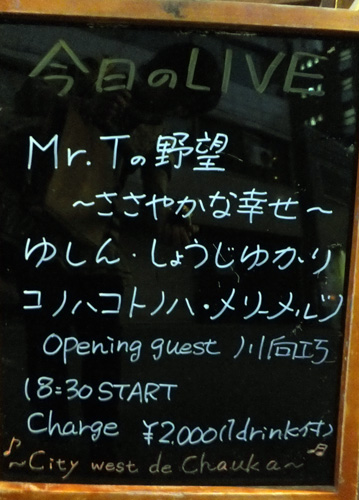 今日のLIVE
Mr.Tの野望
～ささやかな幸せ～
ゆしん・しょうじゆかり
コノハコトノハ・メリーメルツ
Opening guest 川向巧
18:30 START
Charge ¥2.000(1drink付)
～City west de Chauka～